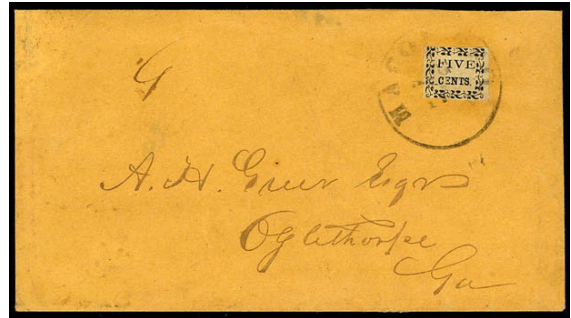 FIVE
CENTS.
MACON
A. H. Greer Esqr
Oglethorpe
Ga